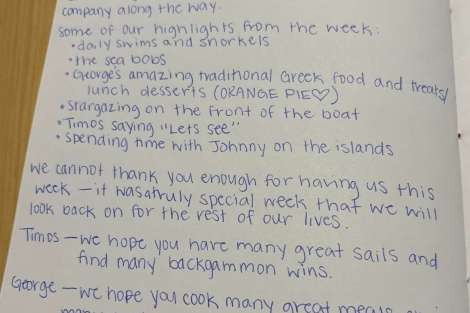 company along the way.
some of our highlights from the week:
• daily swims and snorkels
• the sea bobs
• George's amazing traditional Greek food and treats/
lunch desserts (ORANGE PIE♡)
• stargazing on the front of the boat
• Timos saying "Lets see"
• spending time with Johnny on the islands
We cannot thank you enough for having us this
week — it was a truly special week that we will
look back on for the rest of our lives.
Timos — we hope you have many great sails and
find many backgammon wins.
George — we hope you cook many great meals